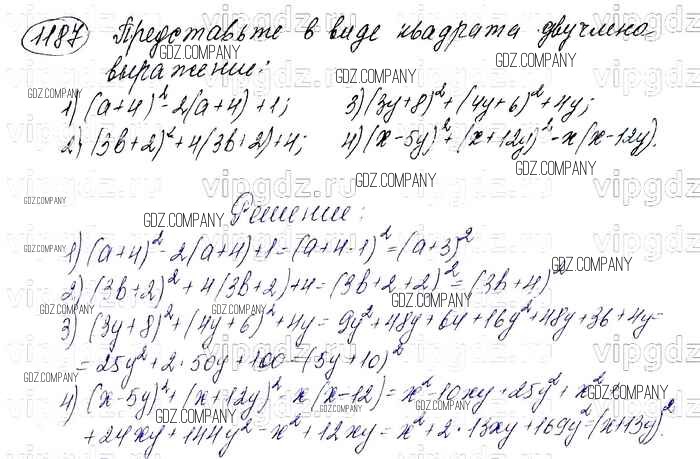 1187 Представьте в виде квадрата двучлена
выражение:
1) (a+4)²-2(a+4)+1; 3) (3y+8)²+(4y+6)²+4y;
2) (3b+2)²+4(3b+2)+4; 4) (x-5y)²+(x+12y)²-x(x-12y).
Решение:
1) (a+4)²-2(a+4)+1=(a+4-1)²=(a+3)²
2) (3b+2)²+4(3b+2)+4=(3b+2+2)²=(3b+4)²
3) (3y+8)²+(4y+6)²+4y=9y²+48y+64+16y²+48y+36+4y=
=25y²+2·50y+100=(5y+10)²
4) (x-5y)²+(x+12y)²-x(x-12)=x²-10xy+25y²+x²+
+24xy+144y²-x²+12xy=x²+2·13xy+169y²=(x+13y)².